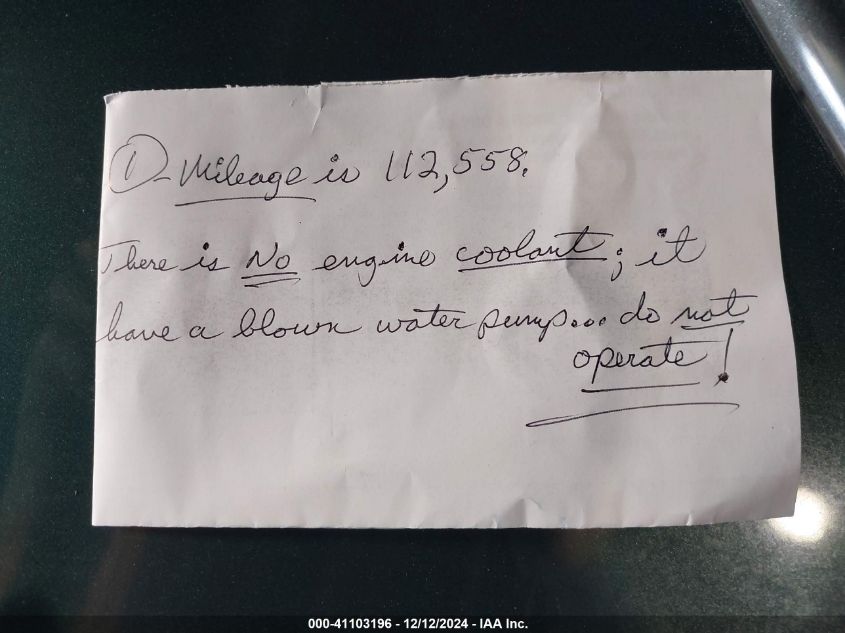 ① - Mileage is 112,558.
There is No engine coolant; it
have a blown water pump... do not
operate!
000-41103196 - 12/12/2024 - IAA Inc.